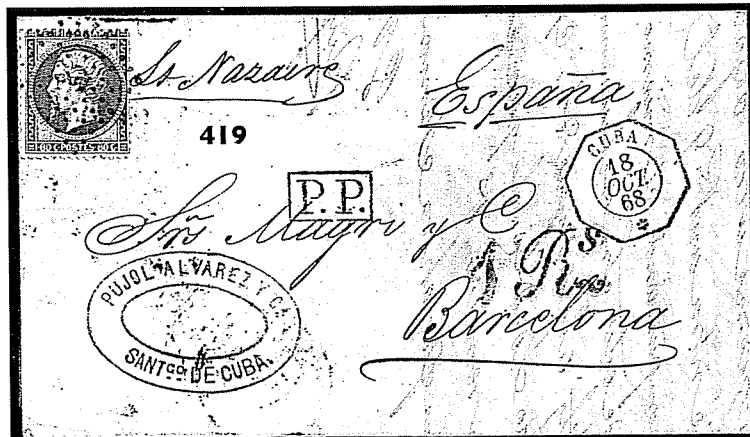 St. Nazaire
España
419
80 C POSTES 80 C
CUBA
18
OCT.
68
P.P.
Srs Magri y C
4 Rs
Barcelona
PUJOL ALVAREZ Y CA.
SANTGO DE CUBA.